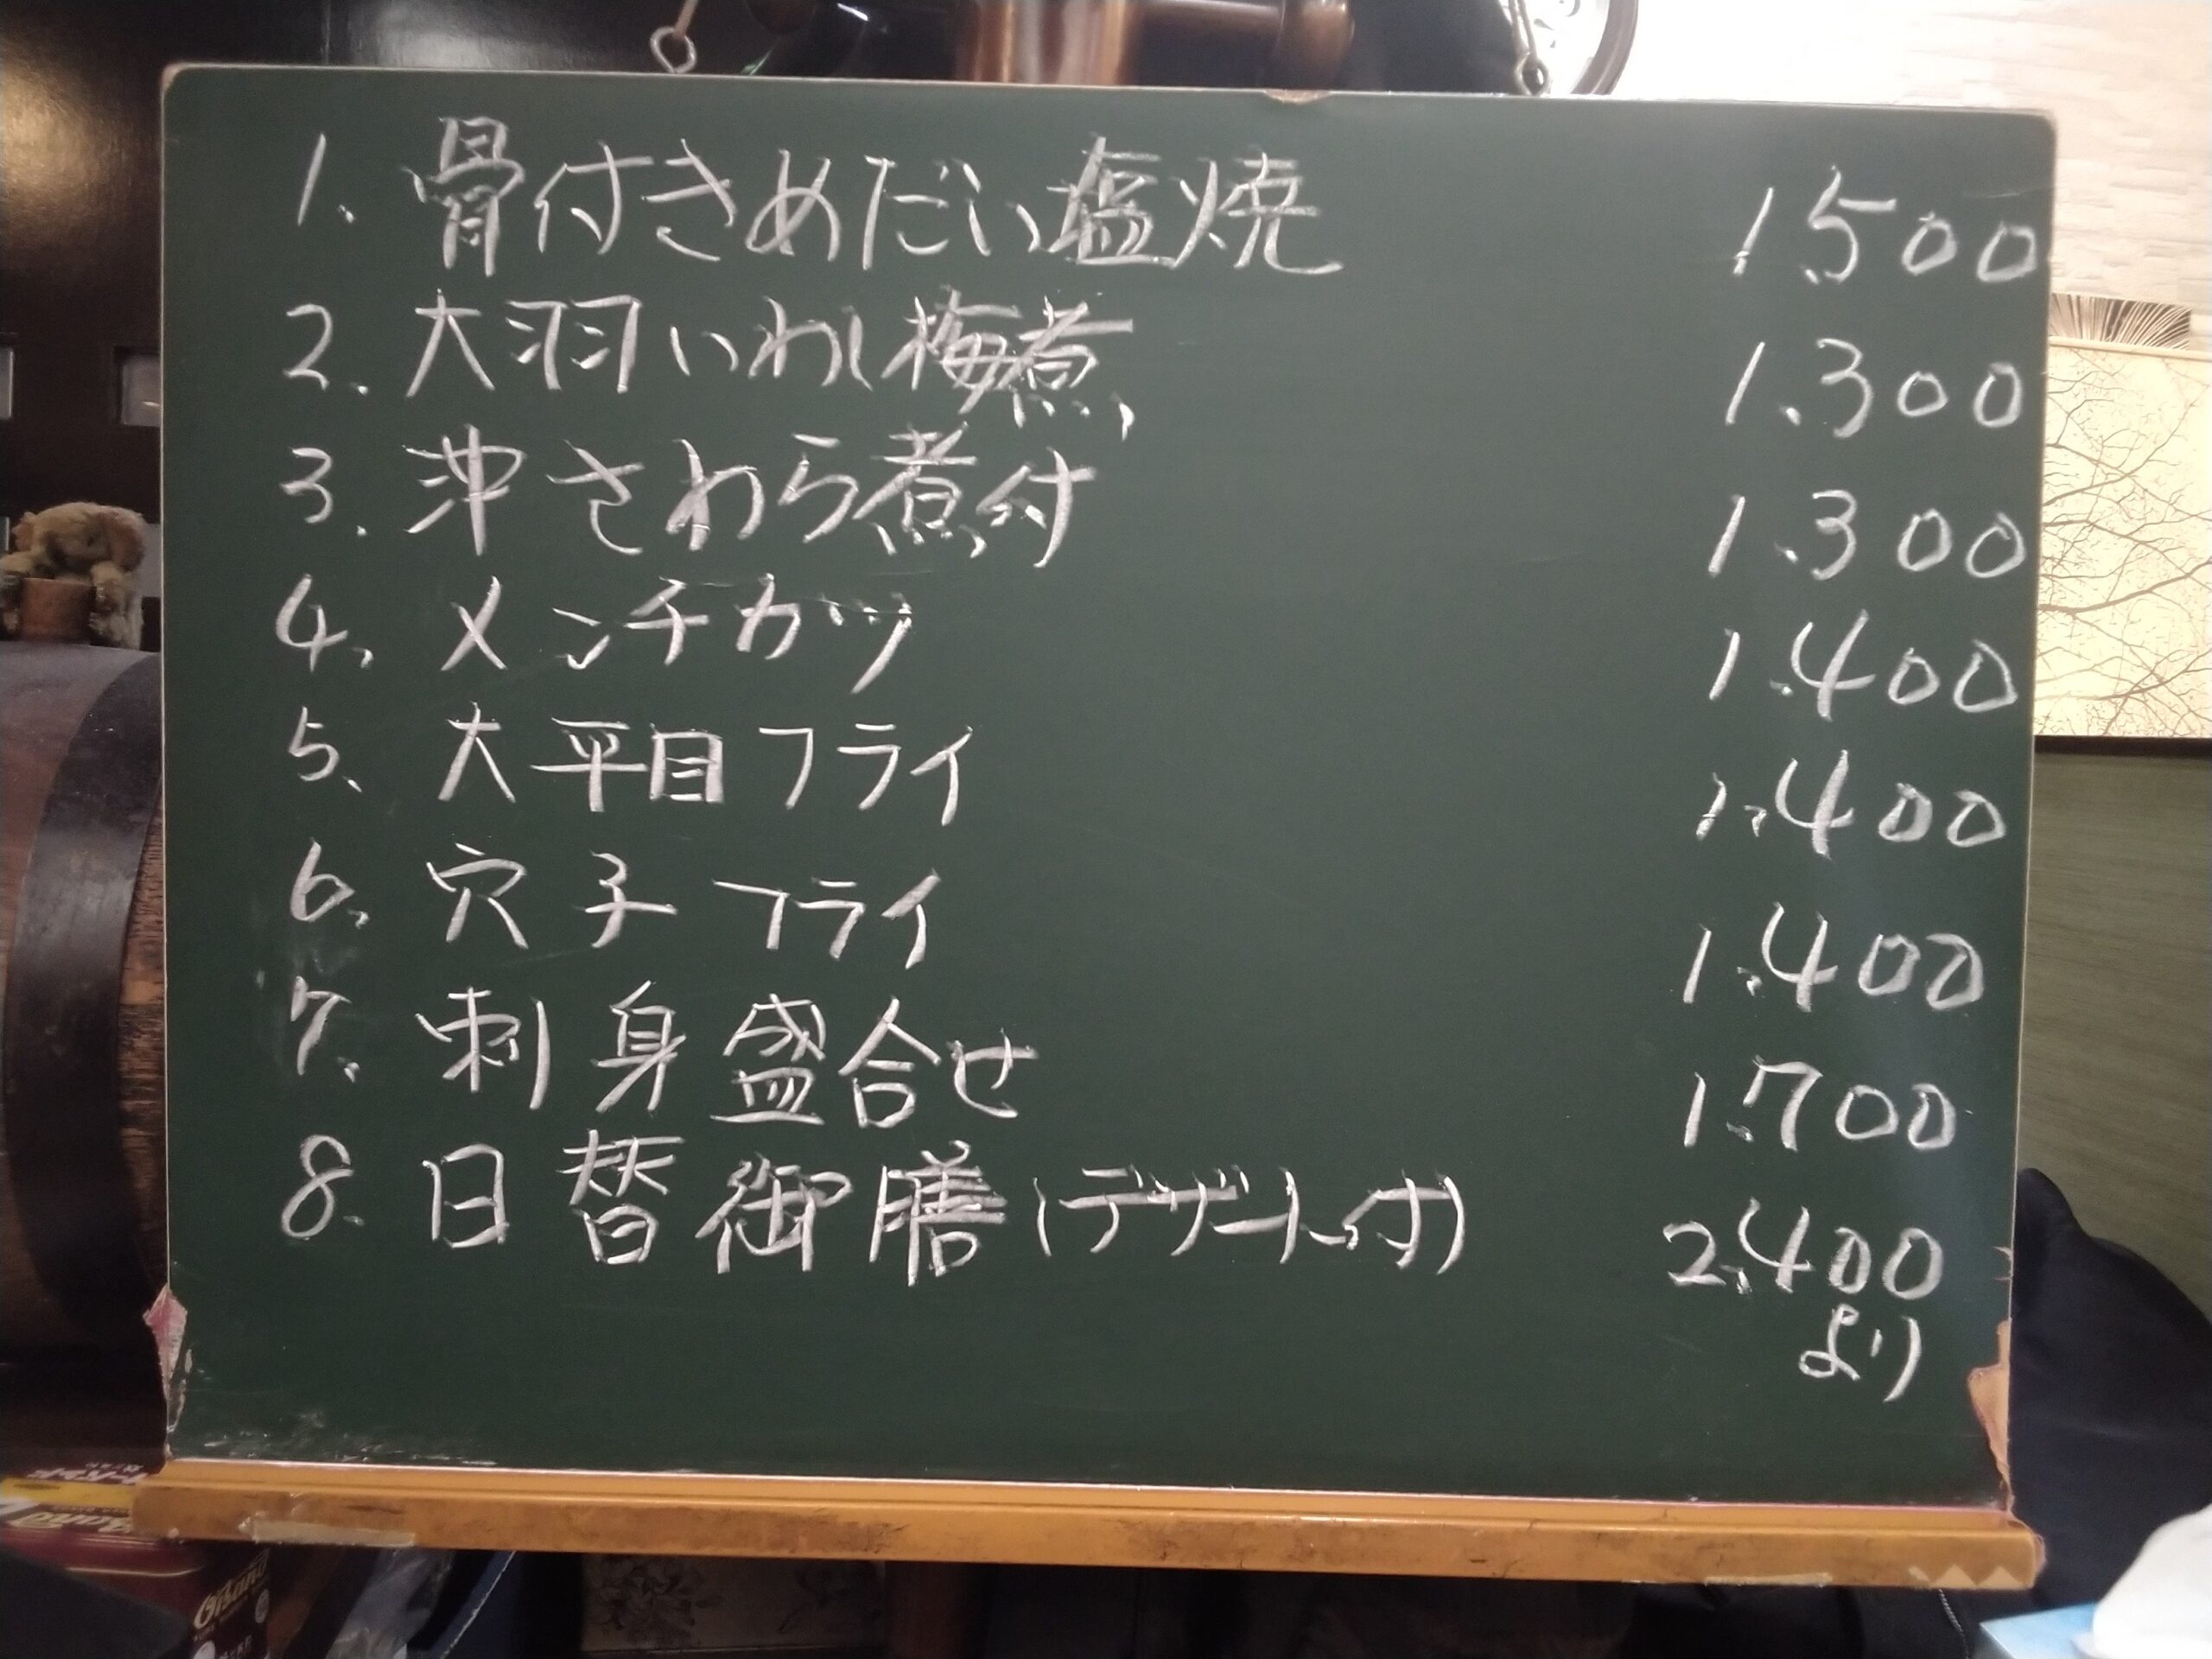 1. 骨付きめだい塩焼 1.500
2. 大羽いわし梅煮 1.300
3. 沖さわら煮付 1.300
4. メンチカツ 1.400
5. 大平目フライ 1.400
6. 穴子フライ 1.400
7. 刺身盛合せ 1.700
8. 日替御膳(デザート付) 2.400
より